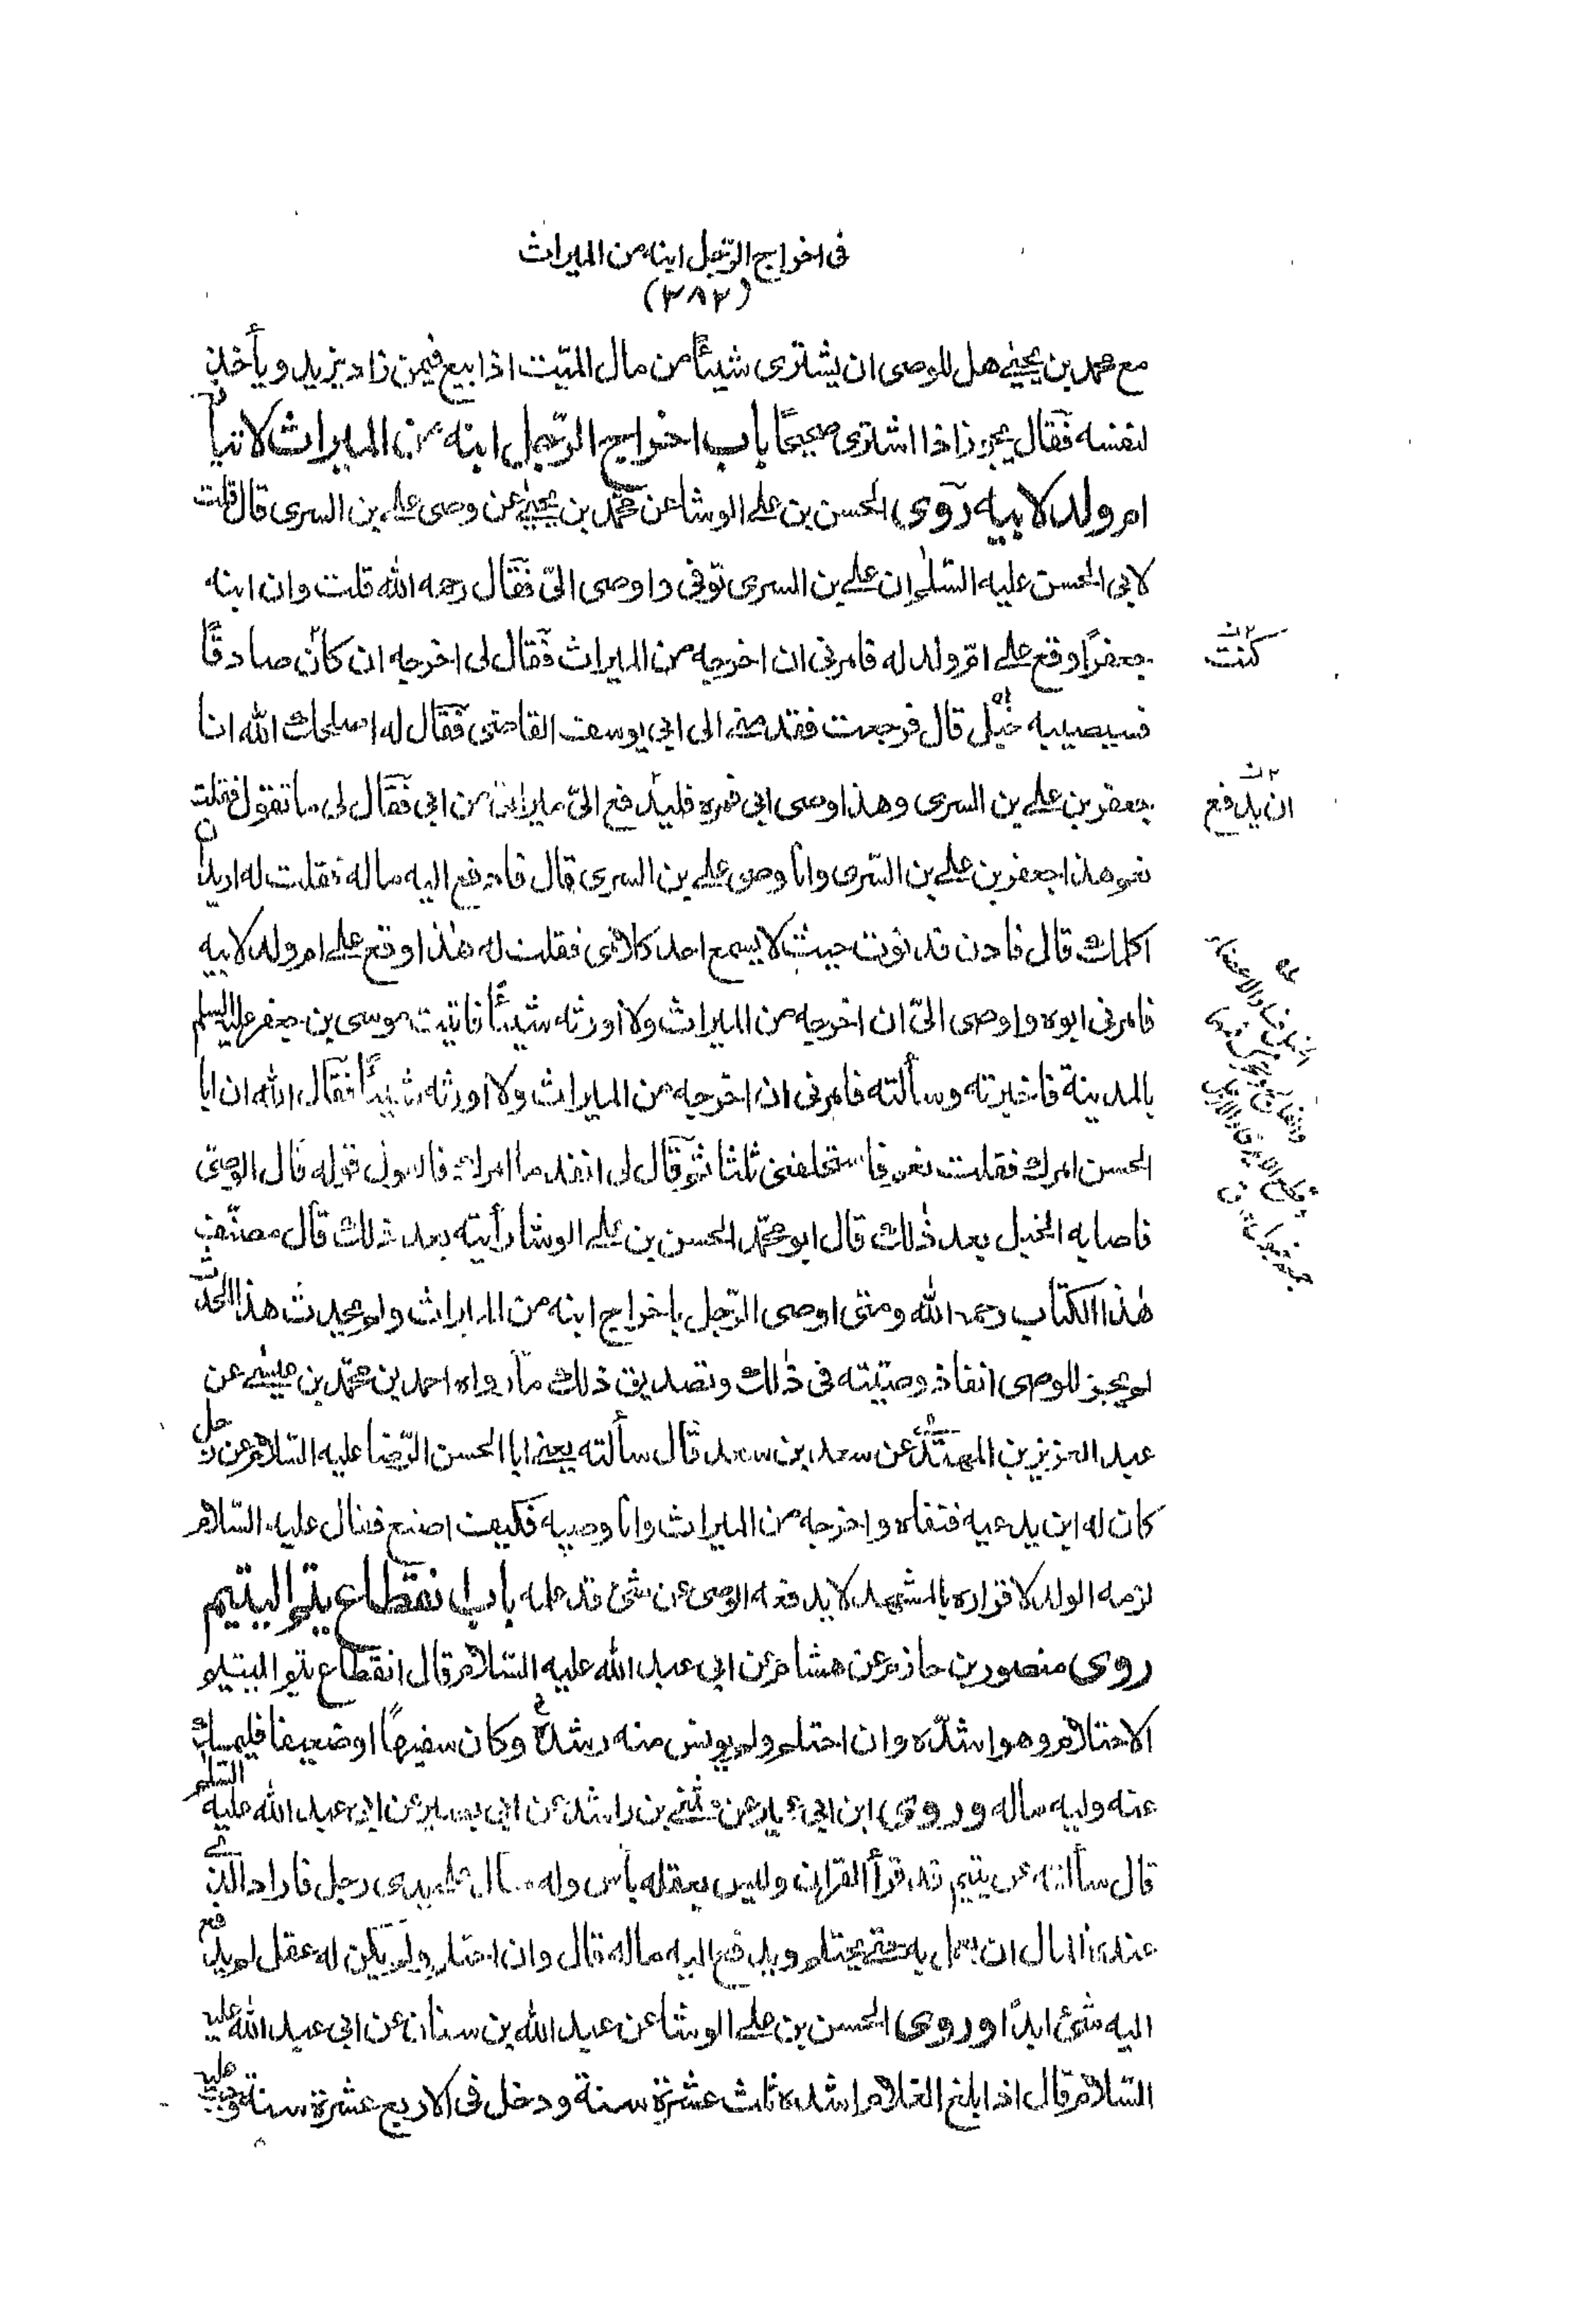 فى اخراج الرّجل ابنه من الميراث
(٣٨٢)
مع محمد بن يحيى هل للوصى ان يشترى شيئًا من مال الميّت اذا بيع فيمن زاد يزيد ويأخذ
لنفسه فقال يجوز اذا اشترى صحيحًا باب اخراج الرّجل ابنه من الميراث لاتيانه
ام ولد لابيه روى الحسن بن على الوشا عن محمّد بن يحيى عن وصى على بن السرى قال قلت
لابى الحسن عليه السّلم ان على بن السرى توفى واوصى الىّ فقال رحمه الله قلت وان ابنه
جعفرًا وقع على امّ ولد له فامرنى ان اخرجه من الميراث فقال لى اخرجه ان كان صادقًا
كنت
فسيصيبه خبل قال فرجعت فقدمنى الى ابى يوسف القاضى فقال له اصلحك الله انا
جعفر بن على بن السرى وهذا وصى ابى فمره فليدفع الىّ ميراثى من ابى فقال لى ما تقول فقلت
ان يدفع
نعم هذا جعفر بن على بن السّرى وانا وصى على بن السرى قال فادفع اليه ماله فقلت له اريد ان
اكلمك قال فادن فدنوت حيث لا يسمع احد كلامى فقلت له هذا وقع على ام ولد لابيه
فامرنى ابوه واوصى الىّ ان اخرجه من الميراث ولا اورثه شيئًا فاتيت موسى بن جعفر عليه السلم
بالمدينة فاخبرته وسألته فامرنى ان اخرجه من الميراث ولا اورثه شيئًا فقال الله ان ابا
الحسن امرك فقلت نعم فاستحلفنى ثلثا ثم قال لى انفذ ما امرك فالقول قوله قال الوصىّ
فاصابه الخبل بعد ذلك قال ابو محمّد الحسن بن على الوشا رأيته بعد ذلك قال مصنّف
هذا الكتاب رحمه الله ومتى اوصى الرّجل باخراج ابنه من الميراث ولم يحدث هذا الحدث
لم يجز للوصى انفاذ وصيّته فى ذلك وتصديق ذلك ما رواه احمد بن محمّد بن عيسى عن
عبد العزيز بن المهتدى عن سعد بن سعد قال سألته يعنى ابا الحسن الرّضا عليه السّلام عن رجل
كان له ابن يدعيه فنفاه واخرجه من الميراث وانا وصيه فكيف اصنع فقال عليه السّلام
لزمه الولد لاقراره بالمشهد لا يدفعه الوصى عن شئ قد علمه باب انقطاع يتم اليتيم
روى منصور بن حازم عن هشام عن ابى عبد الله عليه السّلام قال انقطاع يتم اليتيم
الاحتلام وهو اشدّه وان احتلم ولم يونس منه رشده وكان سفيهًا اوضعيفا فليمسك
عنه وليه ماله وروى ابن ابى عمير عن مثنى بن راشد عن ابى بصير عن ابى عبد الله عليه السّلم
قال سألته عن يتيم قد قرأ القرآن وليس بعقله بأس وله مال على يدى رجل فاراد الذى
عنده المال ان يعمل به حتى يحتلم ويدفع اليه ماله قال وان احتلم ولم يكن له عقل لم يدفع
اليه شئ ابدًا وروى الحسن بن على الوشا عن عبد الله بن سنان عن ابى عبد الله عليه
السّلام قال اذا بلغ الغلام اشده ثلث عشرة سنة ودخل فى الاربع عشرة سنة وجب عليه